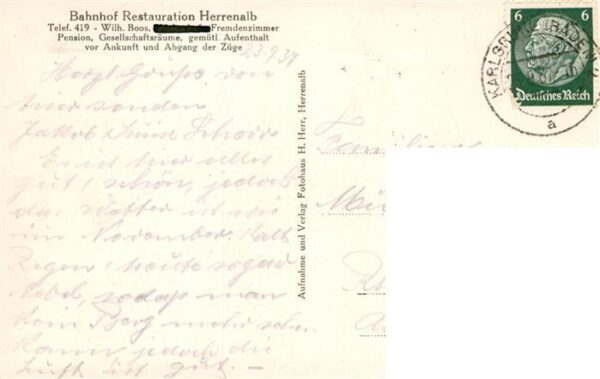 Bahnhof Restauration Herrenalb
Telef. 419 - Wilh. Boos. Fremdenzimmer
Pension, Gesellschaftsräume, gemütl. Aufenthalt
vor Ankunft und Abgang der Züge
Herzl. Grüße von
hier senden
Jakob
hier alles
gut & schön, jedoch
das Wetter ist wie
im November. Kalt
Regen & heute sogar
Nebel, sodaß man
kein Berg mehr sehen
kann jedoch die
Luft ist gut. —
Aufnahme und Verlag Fotohaus H. Herr, Herrenalb
Familie
6 6
Deutsches Reich
KARLSRUHE (BADEN)
a